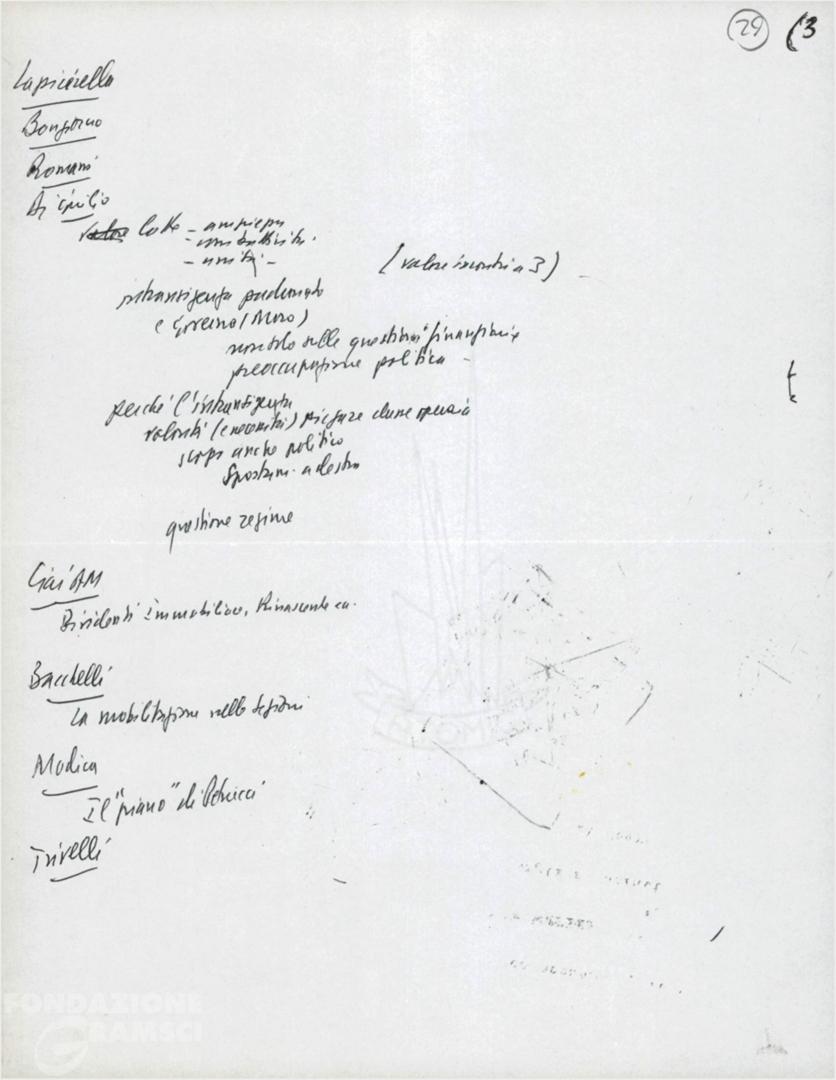 29 3
Lapiccirella
Bongiorno
Romani
Di Giulio
valore lotte - ampiezza
- combattività.
- unità -
(valore incontri a 3)
intransigenza padronato
e Governo (Moro)
non solo sulle questioni finanziarie
preoccupazione politica -
perché l'intransigenza
volontà (necessità) piegare classe operaia
scopo anche politico
Spostam. a destra
questione regime
Dividendi immobiliare, Rinascente ca.
Bacchelli
La mobilitazione nelle sezioni
Modica
Il "piano" di Petrucci
Trivelli
FONDAZIONE
GRAMSCI